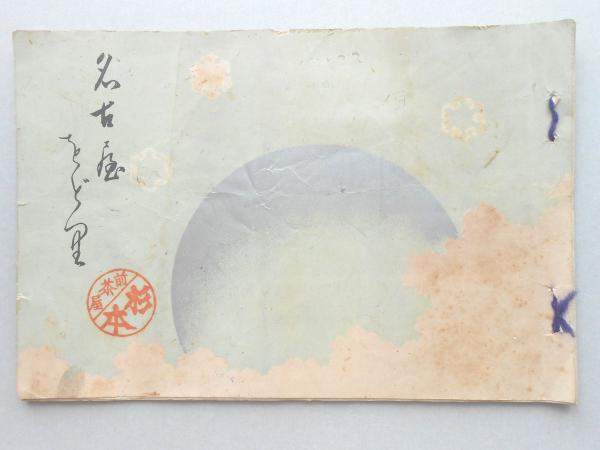 名古屋
をどり
前茶屋
杉本